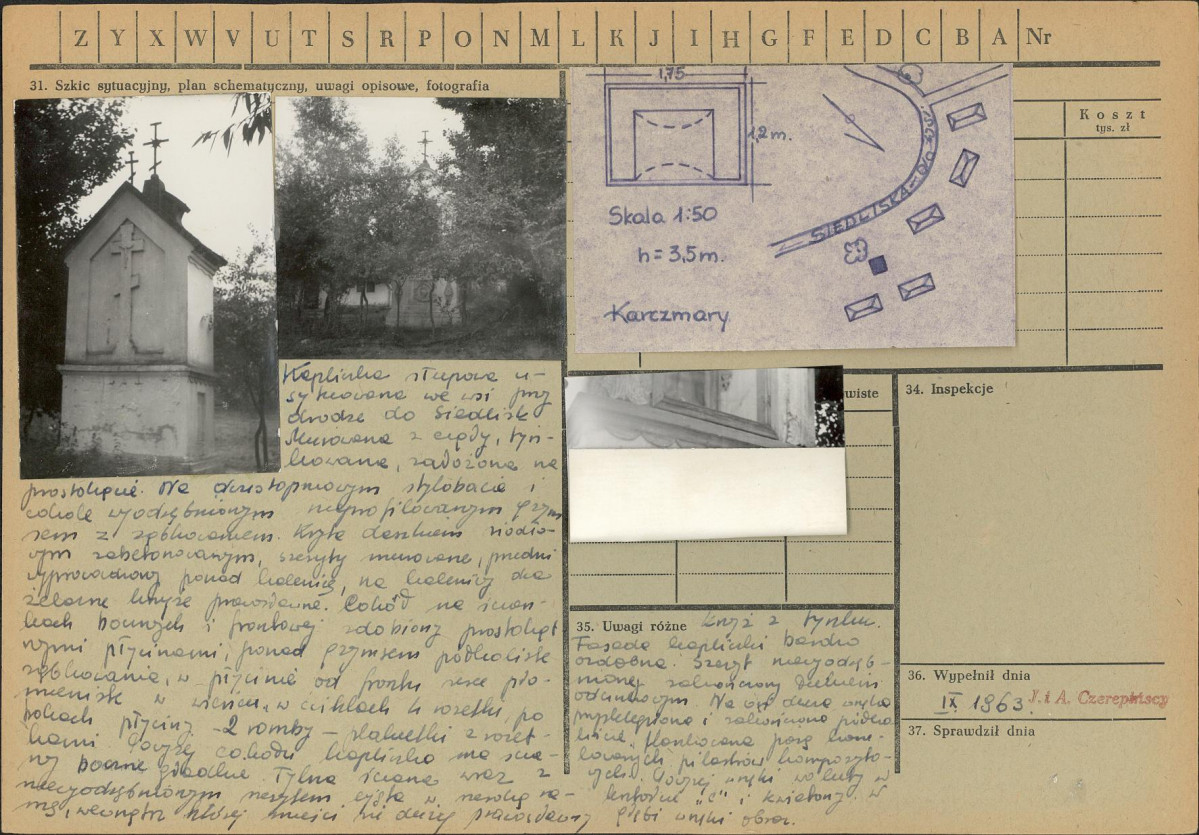 Z Y X W V U T S R P O N M L K J I H G F E D C B A Nr
31. Szkic sytuacyjny, plan schematyczny, uwagi opisowe, fotografia
1,75
1,2 m.
Skala 1:50
h = 3,5 m.
Karczmary
SIEDLISKA
Koszt
tys. zł
Kapliczka słupowa u-
sytuowana we wsi przy
drodze do Siedlisk
Murowana z cegły, tyn-
kowana, założona na
prostokącie. Na
stylobacie i
cokole wyodrębnionym
gzym
sem z ząbkowaniem. Kryta daszkiem siodło-
wym zabetonowanym, szczyty murowane, przedni
wyprowadzony ponad kalenicę, na kalenicy dwa
żelazne krzyże prawosławne. Cokół na ścian-
kach bocznych i frontowej zdobiony prostokąt
nymi płycinami, ponad gzymsem półkoliste
ząbkowania, w płycinie od frontu serce pło-
mieniste w wieńcu, w
4 rozetki, po
bokach płyciny - 2 romby - plakietki z rozet-
kami Powyżej cokołu kapliczka ma ścia-
ny boczne gładkie. Tylna ściana wraz z
niewyodrębnionym
wiste
34. Inspekcje
35. Uwagi różne
Krzyż z tynku.
Fasada kapliczki bardzo
ozdobna. Szczyt niewyodręb-
niony zakończony
odcinkowym. Na osi
przesklepiona i zakończona półko
liście, flankowana parą kane-
lowanych pilastrów kompozyto-
wych. Powyżej wnęki woluty w
"C" i kwietony. W
głębi wnęki obraz.
36. Wypełnił dnia
IX. 1963.
J. i A. Czerepińscy
37. Sprawdził dnia